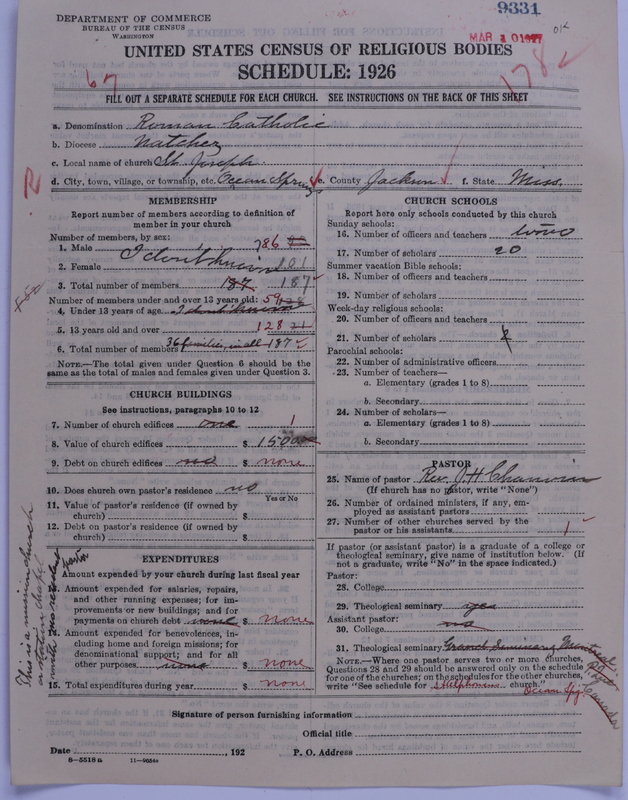 DEPARTMENT OF COMMERCE
BUREAU OF THE CENSUS
WASHINGTON
9331
OK
MAR 10 1927
UNITED STATES CENSUS OF RELIGIOUS BODIES
SCHEDULE: 1926
67
178
FILL OUT A SEPARATE SCHEDULE FOR EACH CHURCH. SEE INSTRUCTIONS ON THE BACK OF THIS SHEET
a. Denomination Roman Catholic
b. Diocese Natchez
c. Local name of church St. Joseph
d. City, town, village, or township, etc. Ocean Springs e. County Jackson f. State Miss.
R
MEMBERSHIP
Report number of members according to definition of member in your church
Number of members, by sex:
1. Male 86
I don't know
2. Female 101
3. Total number of members 187 187
Number of members under and over 13 years old:
4. Under 13 years of age I don't know 59 128
5. 13 years old and over 128 21
6. Total number of members 36 families in all 187
NOTE.—The total given under Question 6 should be the same as the total of males and females given under Question 3.
CHURCH BUILDINGS
See instructions, paragraphs 10 to 12
7. Number of church edifices one 1
8. Value of church edifices $ 1500
9. Debt on church edifices no $ none
10. Does church own pastor's residence no
Yes or No
11. Value of pastor's residence (if owned by church) $
12. Debt on pastor's residence (if owned by church) $
EXPENDITURES
Amount expended by your church during last fiscal year
Amount expended for salaries, repairs, and other running expenses; for improvements or new buildings; and for payments on church debt none $ none
Amount expended for benevolences, including home and foreign missions; for denominational support; and for all other purposes none $ none
15. Total expenditures during year $ none
This is a mission church
CHURCH SCHOOLS
Report here only schools conducted by this church
Sunday schools:
16. Number of officers and teachers two
17. Number of scholars 20
Summer vacation Bible schools:
18. Number of officers and teachers
19. Number of scholars
Week-day religious schools:
20. Number of officers and teachers
21. Number of scholars
Parochial schools:
22. Number of administrative officers
23. Number of teachers—
a. Elementary (grades 1 to 8)
b. Secondary
24. Number of scholars—
a. Elementary (grades 1 to 8)
b. Secondary
PASTOR
25. Name of pastor Rev. J H Chauvin
(If church has no pastor, write "None")
26. Number of ordained ministers, if any, employed as assistant pastors
27. Number of other churches served by the pastor or his assistants 1
If pastor (or assistant pastor) is a graduate of a college or theological seminary, give name of institution below. (If not a graduate, write "No" in the space indicated.)
Pastor:
28. College
29. Theological seminary yes
Assistant pastor:
30. College no
31. Theological seminary Grand Seminary Montreal
Canada
NOTE.—Where one pastor serves two or more churches, Questions 28 and 29 should be answered only on the schedule for one of the churches; on the schedules for the other churches, write "See schedule for St Alphonsus church."
Ocean Spg
Signature of person furnishing information
Official title
Date , 192 P. O. Address
8—5518 a 11—9034